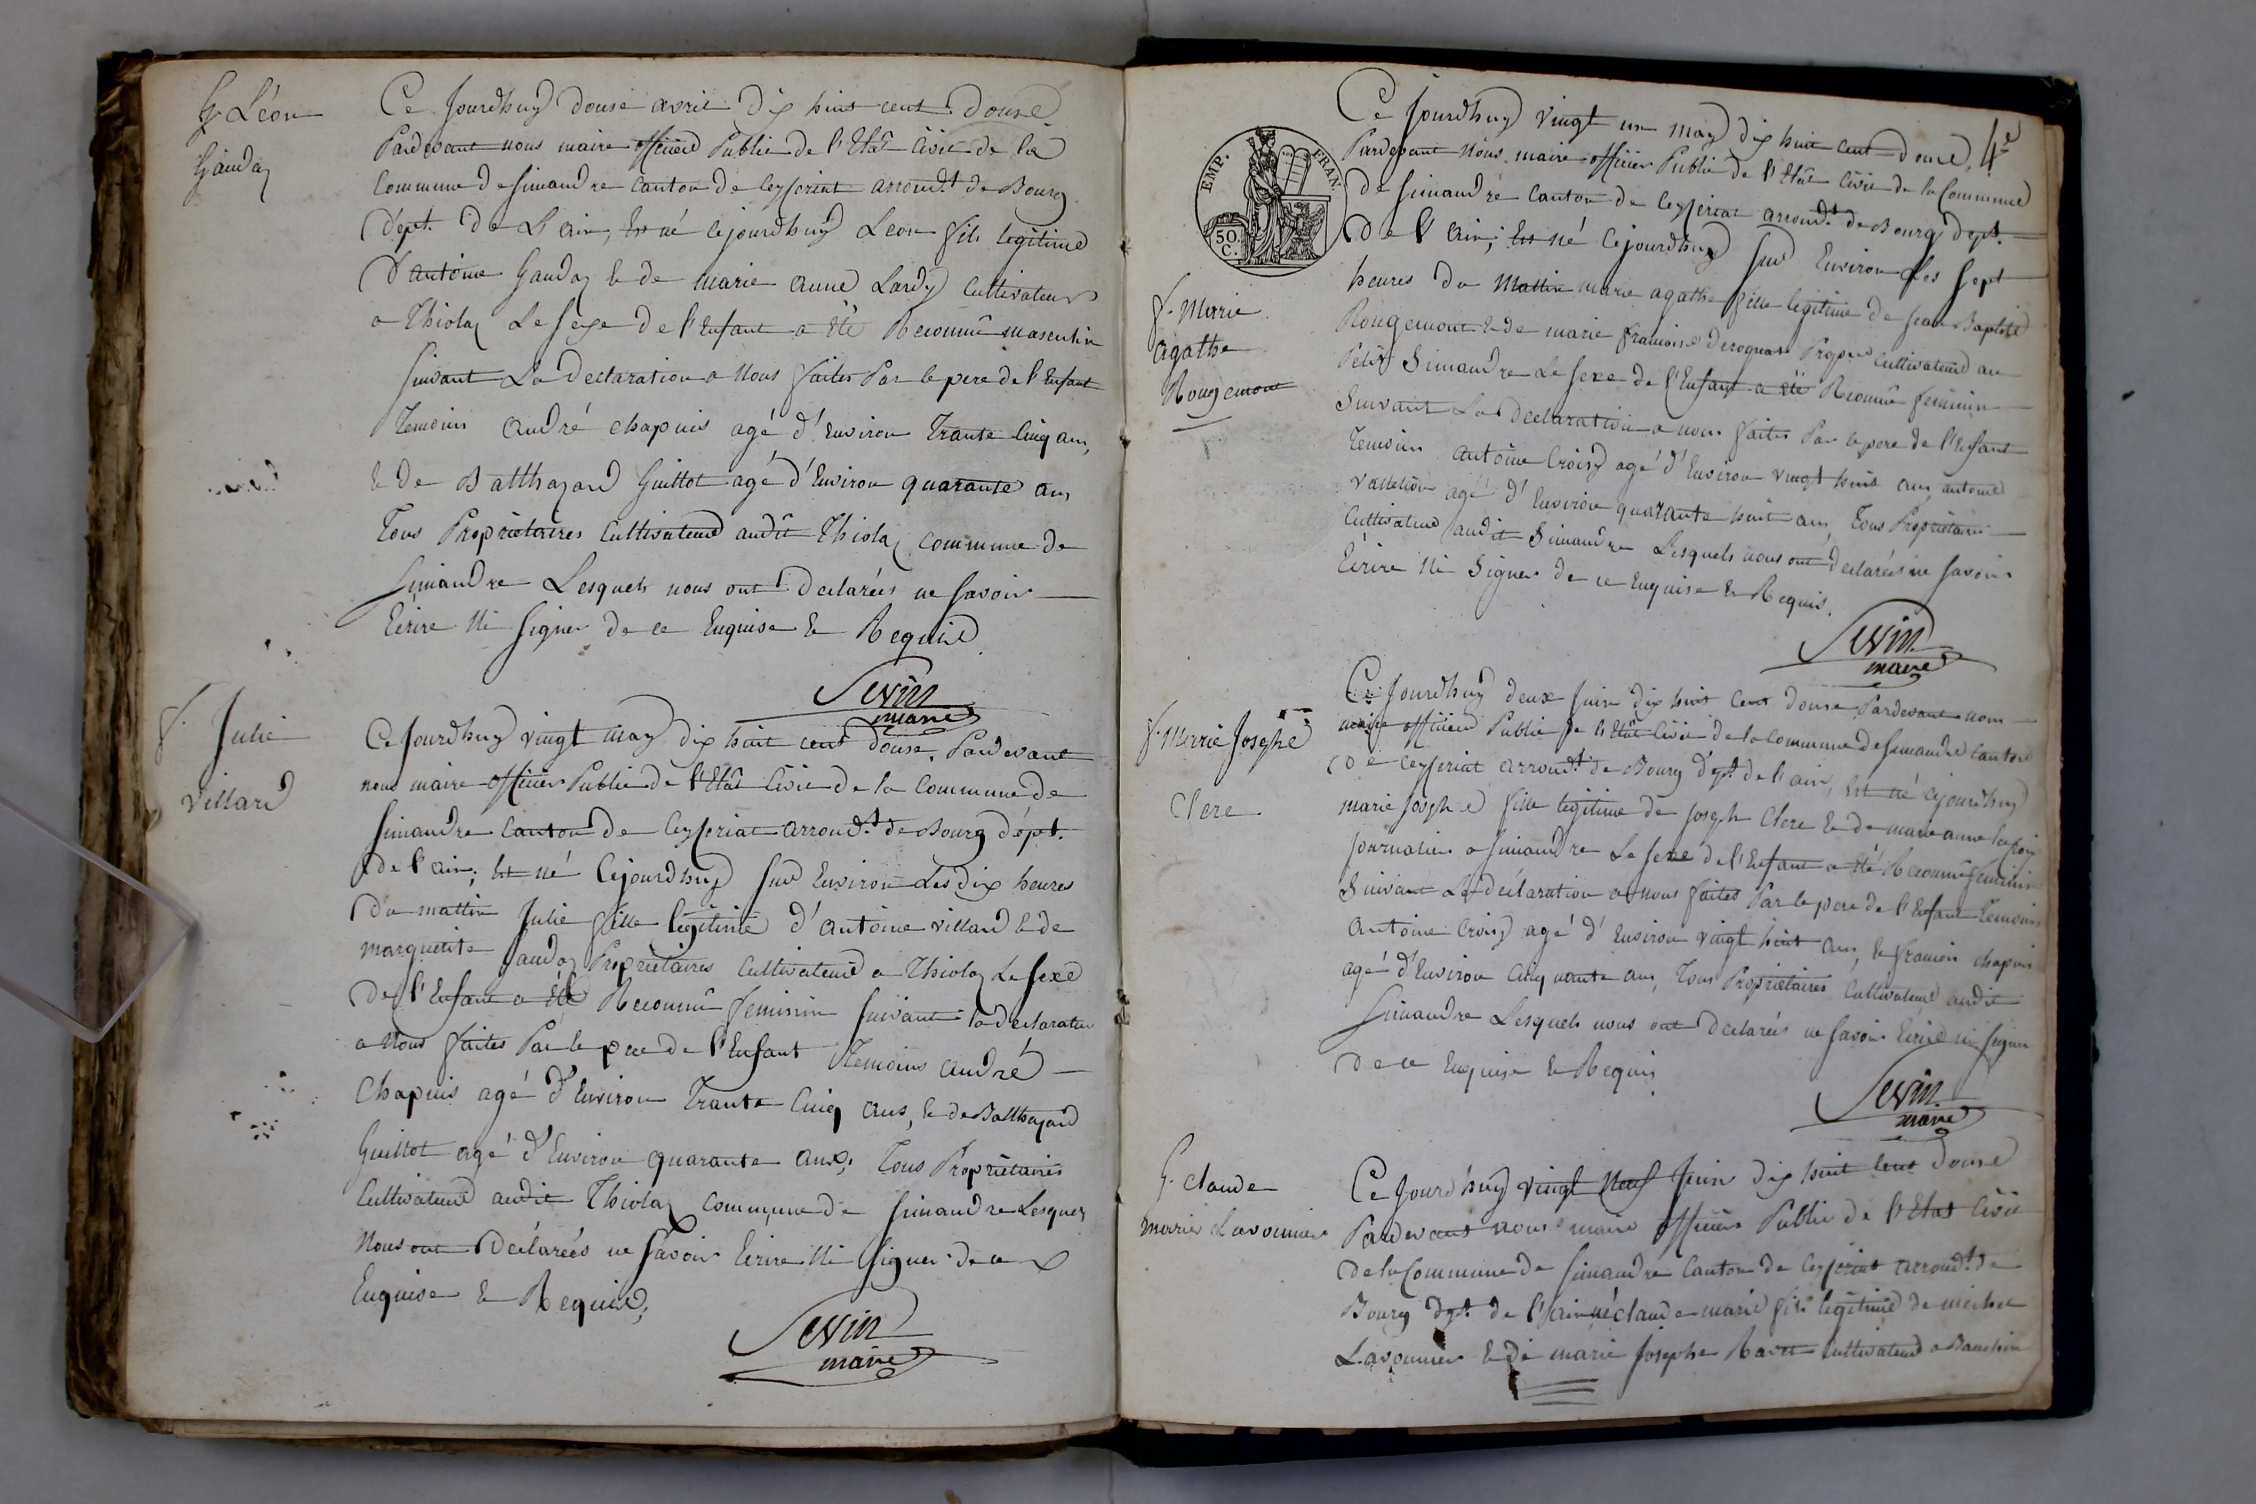 G. Léon
Gauday
Ce Jourdhuy douse avril dix huit cent douse
Pardevant nous maire officier Public de l'Etat Civil de la
Commune de Simandre canton de Ceyseriat arrond.t de Bourg
Dépt. de L'ain, Est né cejourdhuy Léon fils legitime
d'antoine Gauday & de marie anne Lardy Cultivateurs
a Thiolay Le sexe de l'Enfant a été Reconnû masculin
suivant La declaration a Nous faites Par le pere de l'Enfant
Temoins andré chapuis agé d'Environ Trante Cinq ans,
& de Balthazard Guillot agé d'Environ quarante ans
Tous Proprietaires Cultivateurs audit Thiolay commune de
Simandre Lesquels nous ont declarées ne savoir
Ecrire Ni signer de ce Enquise & Requise
Sevin
maire
f. Julie
Villard
Ce Jourdhuy vingt may dix huit cent douse, Pardevant
nous maire officier Public de l'Etat Civil de la Commune de
Simandre Canton de Ceyseriat arrond.t de Bourg dépt.
de l'ain, Est né Cejourdhuy sur Environ Les dix heures
du mattin Julie fille legitime d'antoine villard & de
marguerite Gauday Proprietaires Cultivateurs a Thiolay Le sexe
de l'Enfant a été Reconnû feminin suivant la declaration
a Nous faites Par le pere de l'Enfant Temoins andré
Chapuis agé d'Environ Trante Cinq ans, & de Balthazard
Guillot agé d'Environ quarante ans, Tous Proprietaires
Cultivateurs audit Thiolay commune de Simandre Lesquels
Nous ont Declarées ne savoir Ecrire Ni signer de ce
Enquise & Requise,
Sevin
maire
4e
EMP. FRAN.
50. C.
Ce Jourdhuy vingt un may dix huit cent douse,
Pardevant Nous maire officier Public de l'Etat Civil de la Commune
de Simandre Canton de Ceyseriat arrond.t de Bourg dept.
de l'ain, Est né Cejourdhuy sur Environ Les sept
heures du Mattin marie agathe fille legitime de Jean Baptiste
Rougemont & de marie francoise Cultivateurs au
Petit Simandre Le sexe de l'Enfant a été Reconnû feminin
Suivant La Declaration a nous faites Par le pere de l'Enfant
Temoins antoine Croisy agé d'Environ vingt huit ans, antoine
agé d'Environ quarante huit ans, Tous Proprietaires
Cultivateurs audit Simandre Lesquels nous ont declarées ne savoir
Ecrire Ni Signer de ce Enquise & Requis.
Sevin
maire
f. Marie
agathe
Rougemont
Ce Jourdhuy deux Juin dix huit Cent douse Pardevant nous
maire officier Public de l'Etat Civil de la commune de Simandre Canton
de Ceyseriat arrond.t de Bourg dépt. de l'ain, Est né cejourdhuy
marie Josephe fille legitime de Joseph Clerc & de marie anne
Journalier a Simandre Le sexe de l'Enfant a été Reconnû feminin
Suivant La declaration a nous faites Par le pere de l'Enfant Temoins
antoine Croisy agé d'Environ vingt huit ans, & francois chapuis
agé d'Environ Cinquante ans, Tous Proprietaires Cultivateurs audit
Simandre Lesquels nous ont Declarées ne savoir Ecrire ni signer
de ce Enquise & Requis
Sevin
maire
f. Marie Josephe
Clerc
G. Claude
marie Lavonnier
Ce Jourdhuy vingt Neuf Juin dix huit cent douse
Pardevant nous maire officier Public de l'Etat Civil
de la Commune de Simandre Canton de Ceyseriat arrond.t de
Bourg dept. de l'ain né claude marie fils legitime de
Lavonnier & de marie Josephe Ravet Cultivateurs a